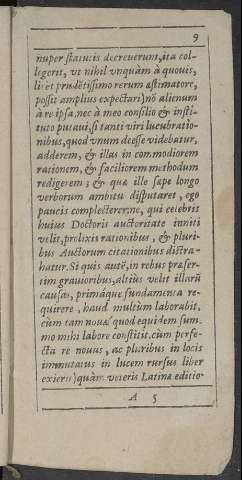 9
nuper statutis decreuerunt, ita col-
legerit, vt nihil vnquàm à quouis,
licet prudẽtissimo rerum æstimatore,
possit amplius expectari) nõ alienum
à re ipsa, nec à meo consilio & insti-
tuto putaui, si tanti viri lucubratio-
nibus, quod vnum deesse videbatur,
adderem, & illas in commodiorem
rationem, & faciliorem methodum
redigerem; & quæ ille sæpe longo
verborum ambitu disputaret, ego
paucis complecterer, ne, qui celebris
huius Doctoris auctoritate inniti
velit, prolixis rationibus, & pluri-
bus Auctorum citationibus distra-
hatur. Si quis autẽ, in rebus præser-
tim grauioribus, altiùs velit illarũ
causas, primáque fundamenta re-
quirere, haud multùm laborabit,
cùm tam nouæ quod equidem sum-
mo mihi labore constitit. cùm perfe-
cta re nouus, ac pluribus in locis
immutatus in lucem rursus liber
exierit) quàm veteris Latinæ editio-
A 5